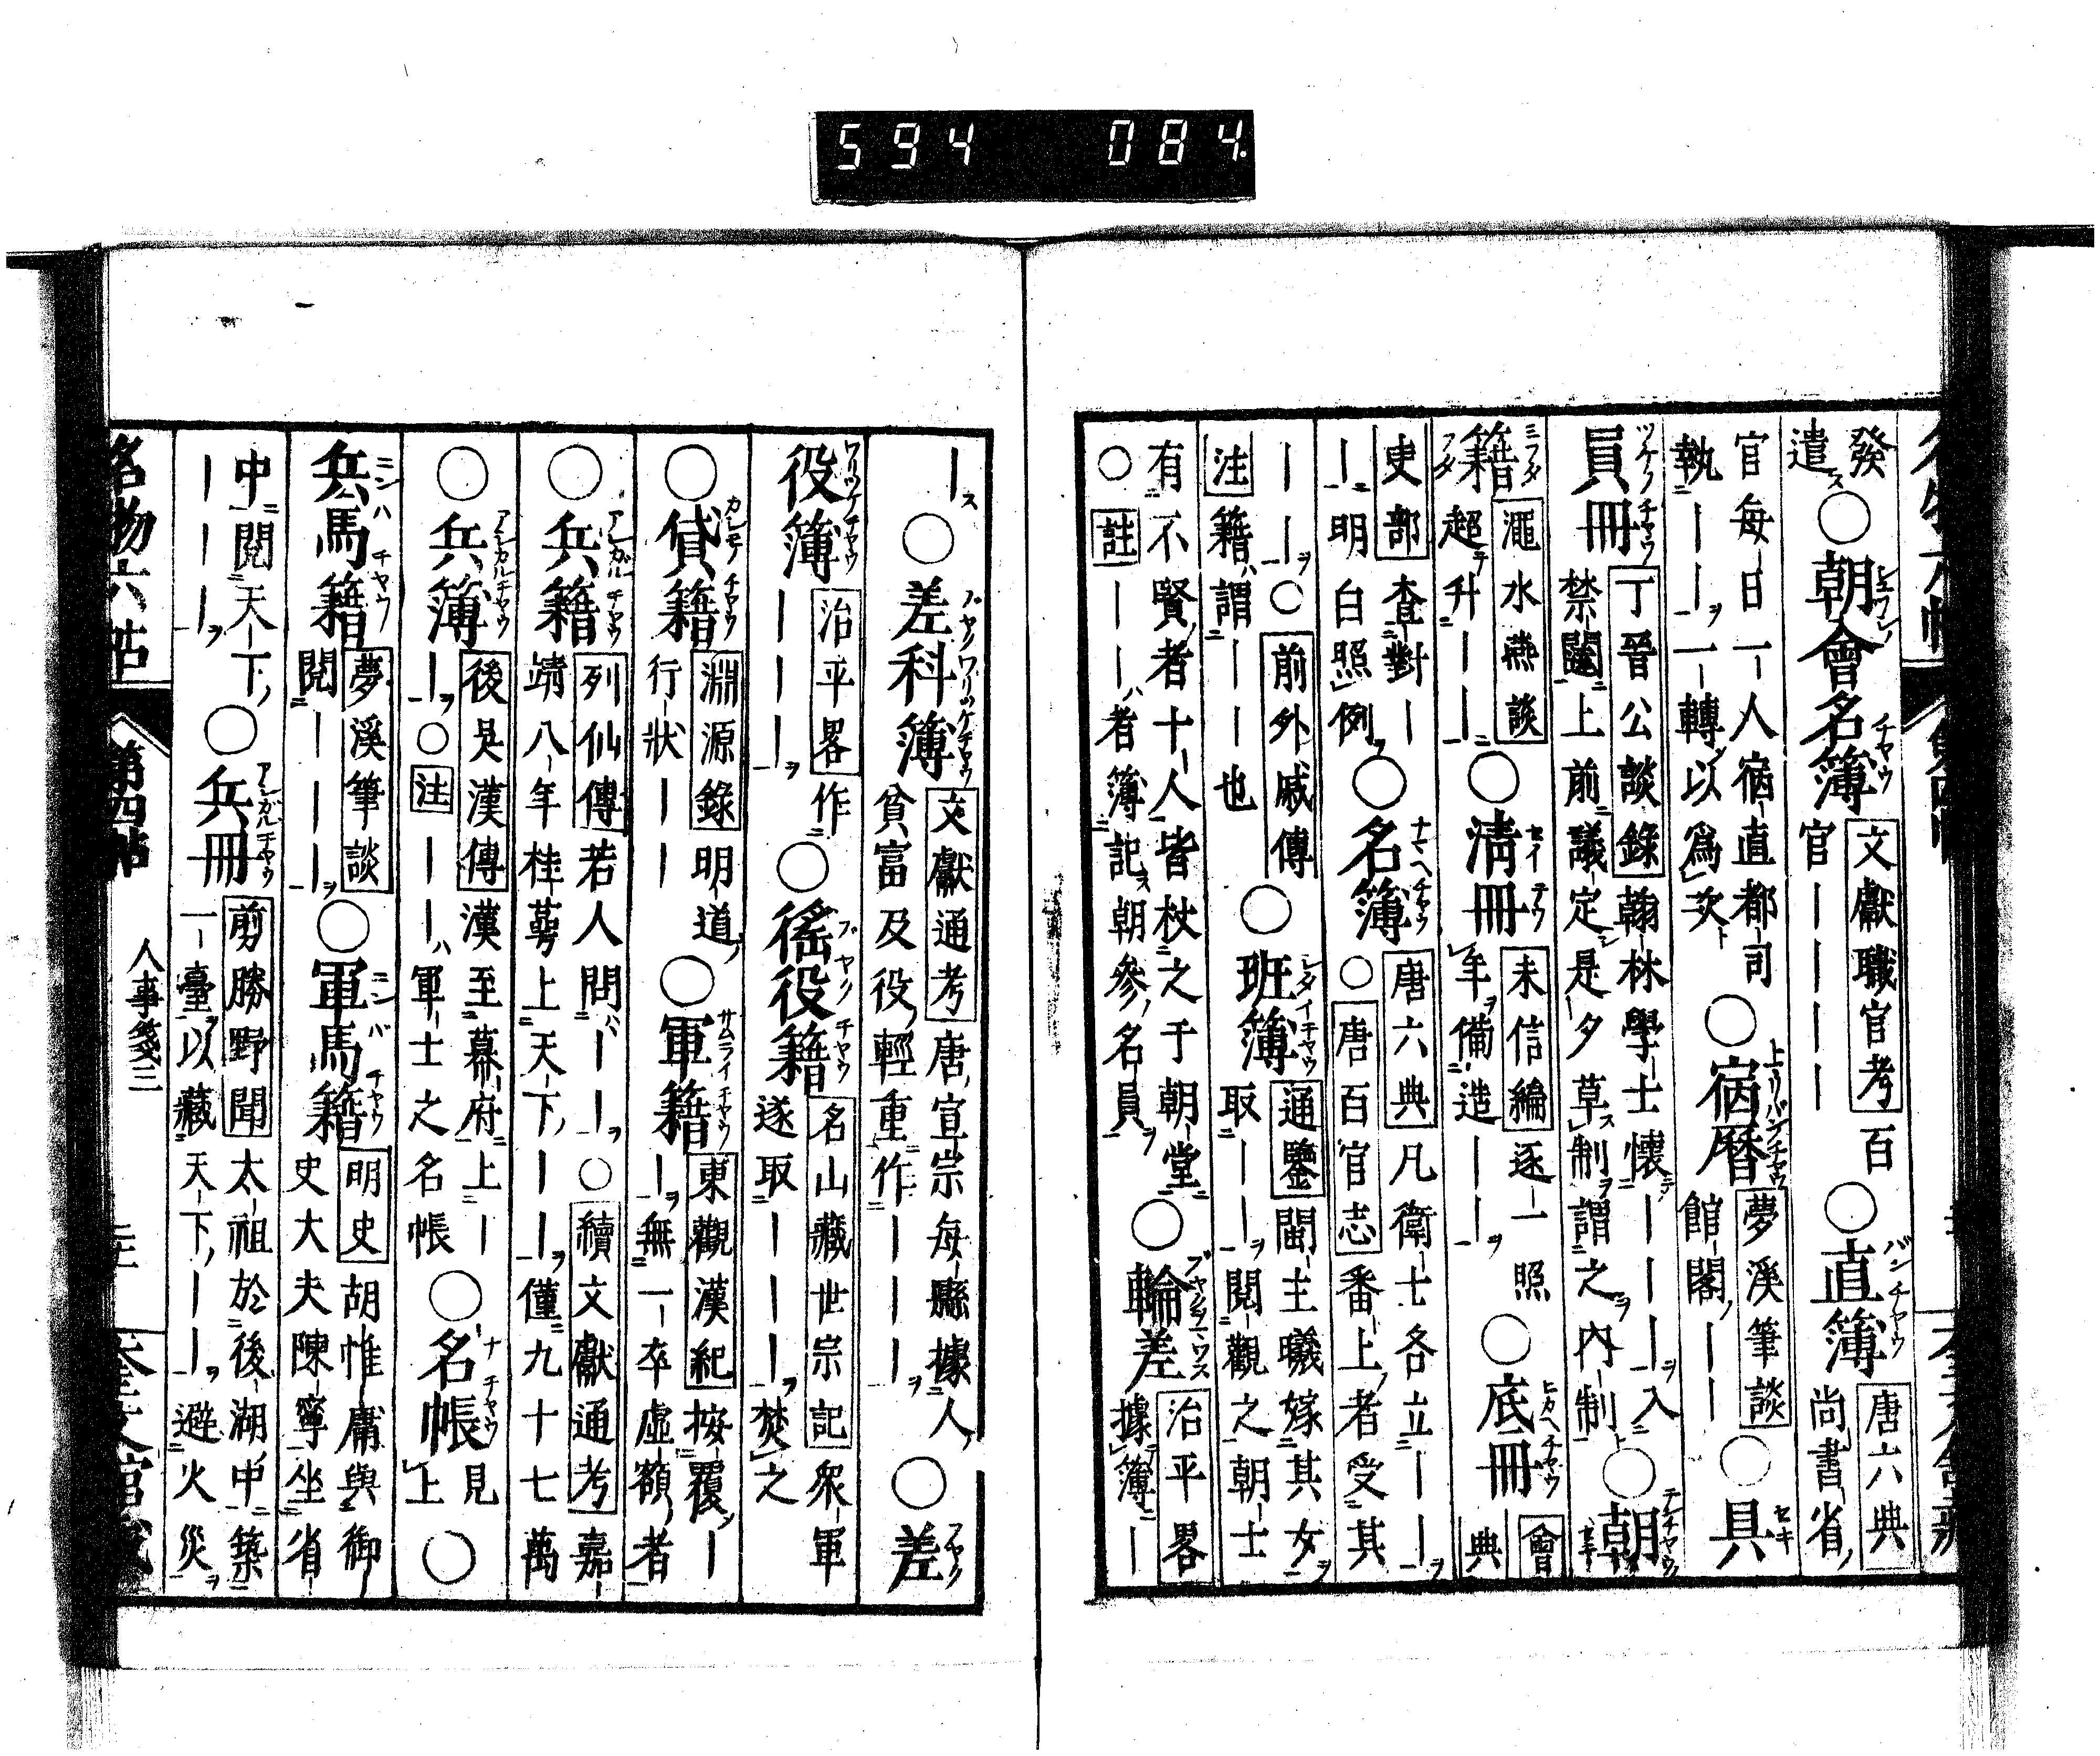 594 084
發遣○朝會名簿文獻職官考百官――――○直簿唐六典尚書省
官每日一人宿直都司執――一轉以爲次○宿曆夢溪筆談館閣――○具
員冊丁晉公談錄翰林學士懷――入禁闥上前議定是夕草制謂之內制○朝
籍澠水燕談超升――○清冊未信編逐一照年備造――○底冊會典
史部查對――明白照例○名簿唐六典凡衛士各立――○唐百官志番上者受其
――○前外戚傳注籍謂―――也○班簿通鑒閩主曦嫁其女取――閱觀之朝士
有不賢者十人皆杖之于朝堂○註――者簿記朝參名員○輪差治平畧據簿―
―○差科簿文獻通考唐宣宗每縣據人貧富及役輕重作―――○差
役簿治平畧作―――○徭役籍名山藏世宗記衆軍遂取―――焚之
○貸籍淵源錄明道行狀――○軍籍東觀漢紀按覆――無一卒虛額者
○兵籍列仙傳若人問――○續文獻通考嘉靖八年桂萼上天下――僅九十七萬
○兵簿後吳漢傳漢至幕府上――○注――軍士之名帳○名帳見上○
兵馬籍夢溪筆談閱―――○軍馬籍明史胡惟庸與御史大夫陳寧坐省
中閱天下―――○兵冊剪勝野聞太祖於後湖中築一臺以藏天下――避火災
名物六帖 第四帖 人事箋三